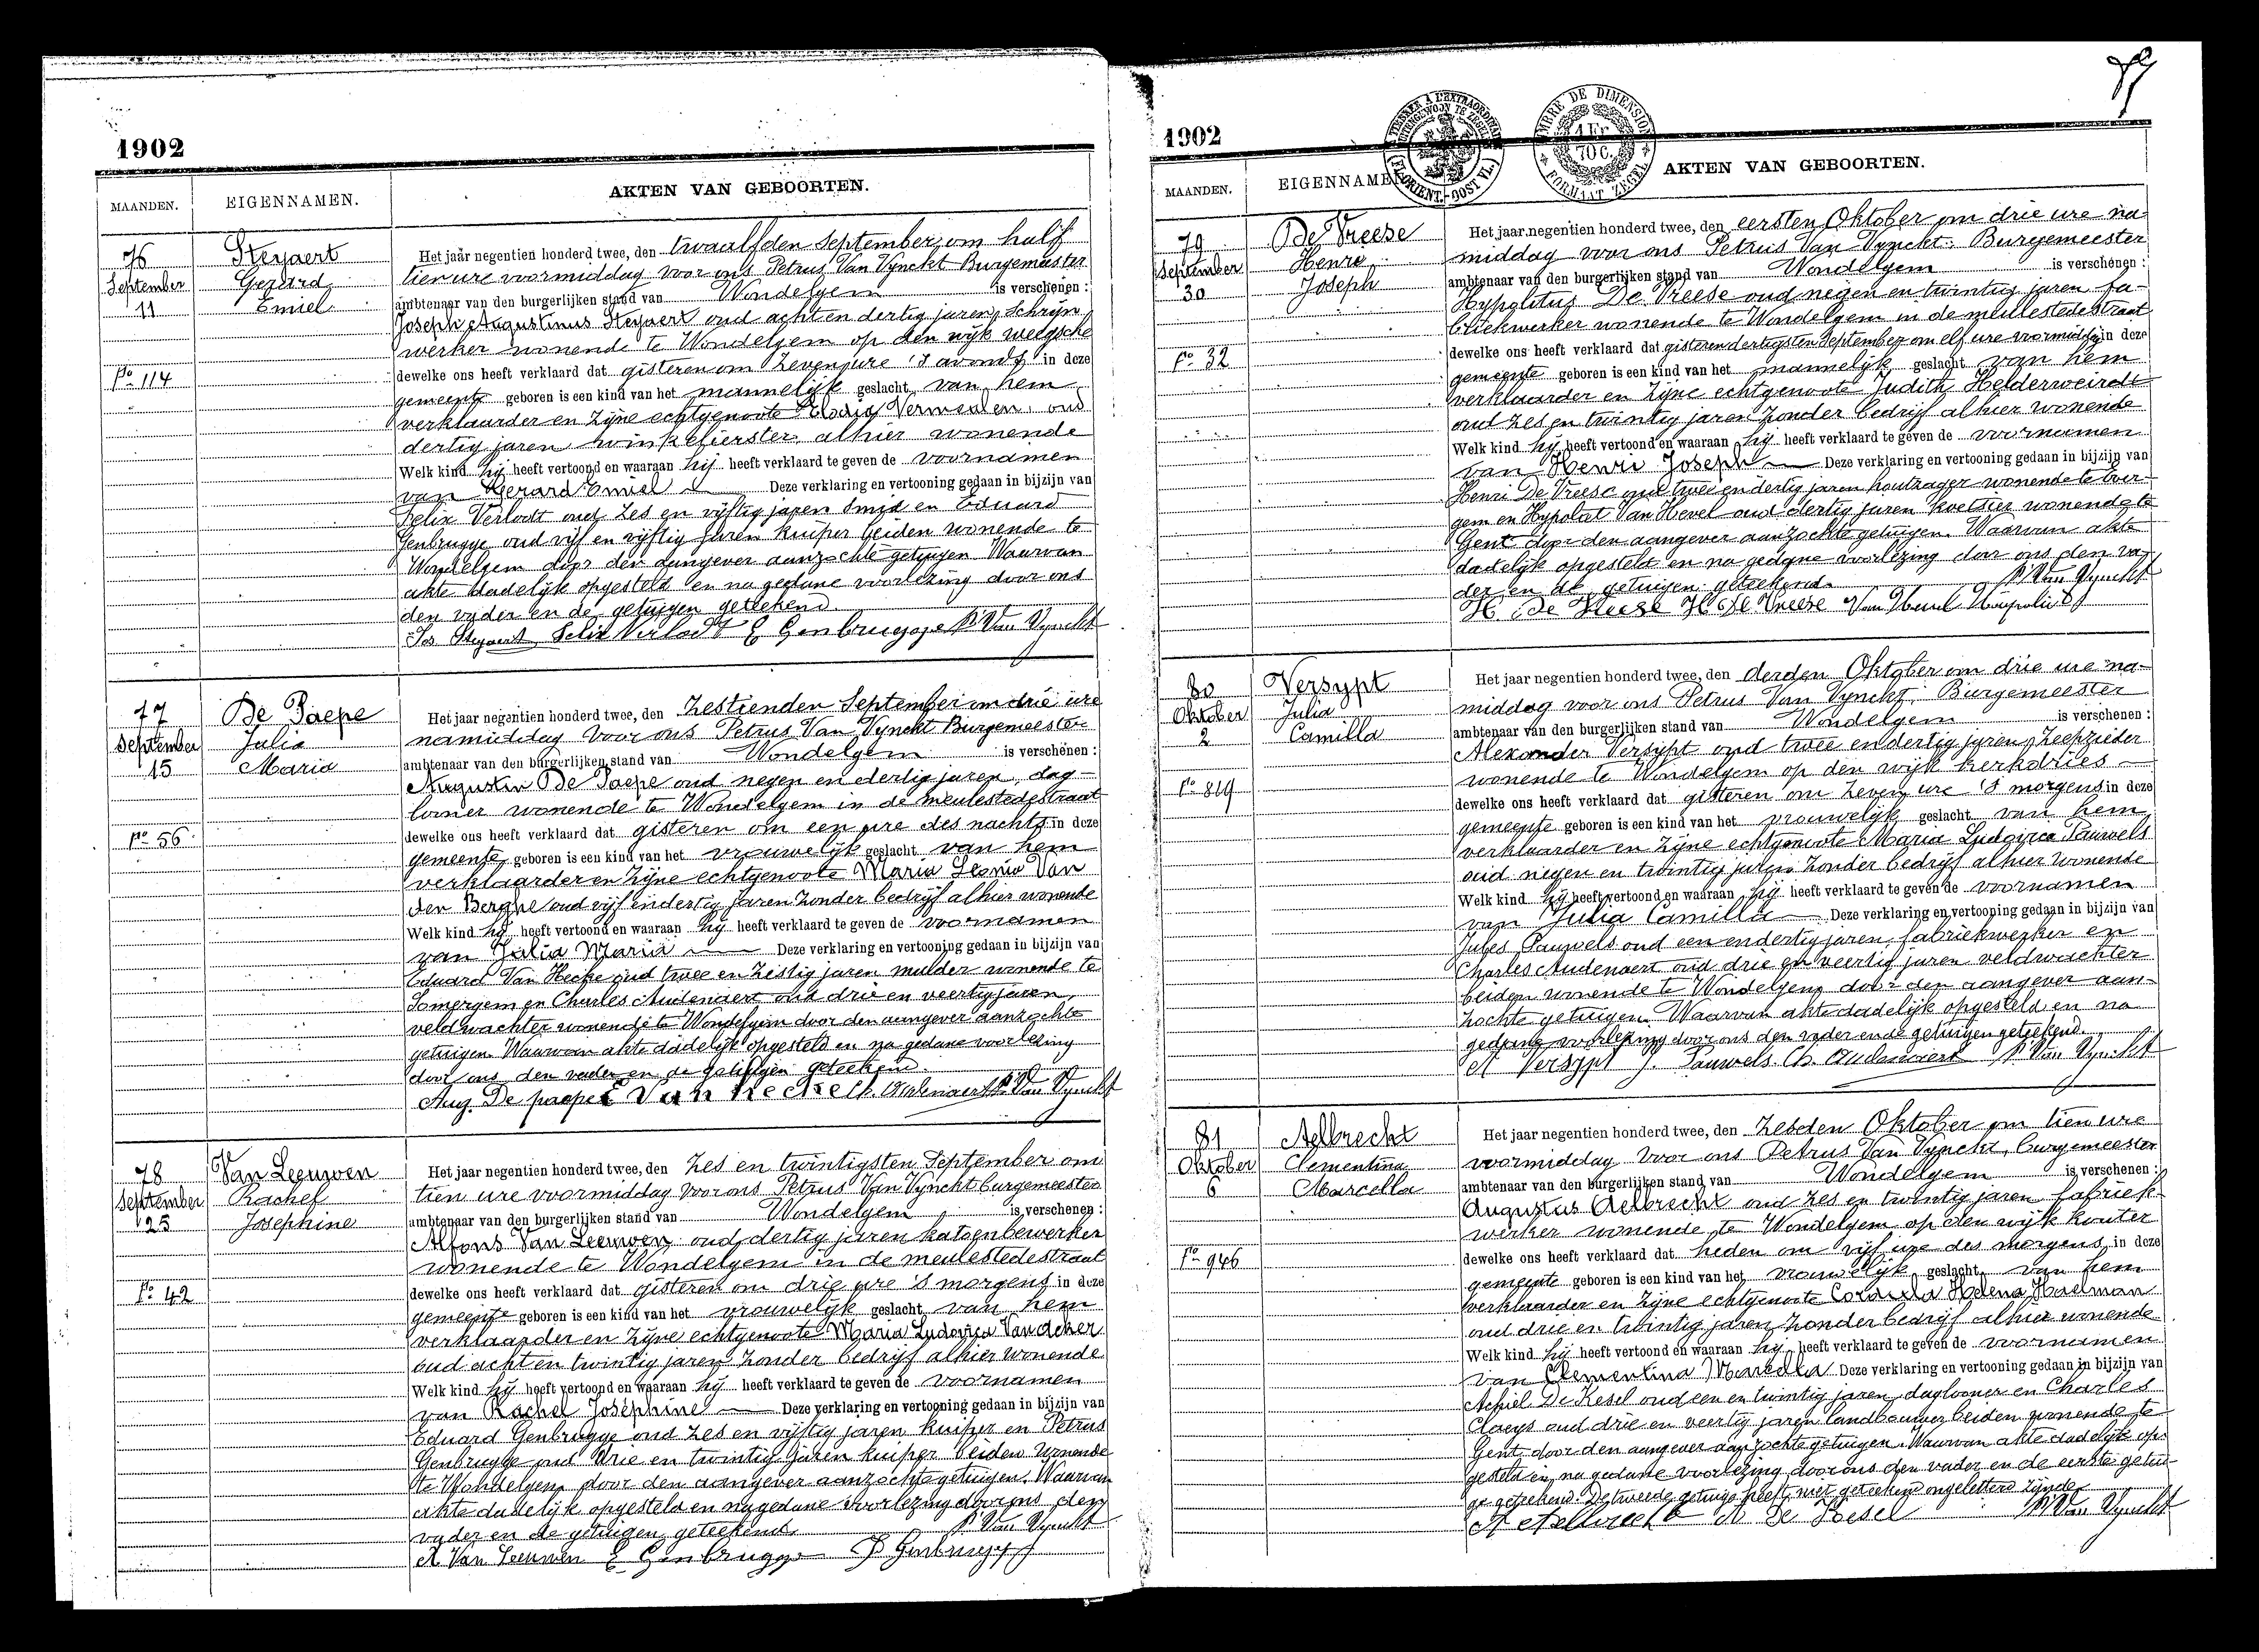 1902
MAANDEN.
EIGENNAMEN.
AKTEN VAN GEBOORTEN.
76
September
11
No 114
Steyaert
Gerard
Emiel
Het jaar negentien honderd twee, den twaalfden September om half
tien ure voormiddag voor ons Petrus Van Vynckt Burgemeester
ambtenaar van den burgerlijken stand van Wondelgem is verschenen :
Joseph Augustinus Steyaert oud acht en dertig jaren, Schrijn
werker wonende te Wondelgem op den wijk weegsche
dewelke ons heeft verklaard dat gisteren om zeven ure 's avonds in deze
gemeente geboren is een kind van het mannelijk geslacht van hem
verklaarder en zijne echtgenoote Elodia Vermeulen oud
dertig jaren winkelierster alhier wonende
Welk kind hij heeft vertoond en waaraan hij heeft verklaard te geven de voornamen
van Gerard Emiel Deze verklaring en vertooning gedaan in bijzijn van
Felix Verlodt oud zes en vijftig jaren Smid en Eduard
Genbrugge oud vijf en vijftig jaren kuiper beiden wonende te
Wondelgem door den aangever aanzochte getuigen Waarvan
akte dadelijk opgesteld en na gedane voorlezing door ons
den vader en de getuigen geteekend.
Jos Steyaert Felix Verlodt E Genbrugge P. Van Vynckt
77
September
15
No 56
De Paepe
Julia
Maria
Het jaar negentien honderd twee, den zestienden September om drie ure
namiddag voor ons Petrus Van Vynckt Burgemeester
ambtenaar van den burgerlijken stand van Wondelgem is verschenen :
Augustin De Paepe oud negen en dertig jaren, dag-
looner wonende te Wondelgem in de meulestedestraat
dewelke ons heeft verklaard dat gisteren om een ure des nachts in deze
gemeente geboren is een kind van het vrouwelijk geslacht van hem
verklaarder en zijne echtgenoote Maria Leonie Van
den Berghe oud vijf en dertig jaren zonder bedrijf alhier wonende
Welk kind hij heeft vertoond en waaraan hij heeft verklaard te geven de voornamen
van Julia Maria Deze verklaring en vertooning gedaan in bijzijn van
Eduard Van Hecke oud twee en zestig jaren mulder wonende te
Somergem en Charles Audenaert oud drie en veertig jaren
veldwachter wonende te Wondelgem door den aangever aanzochte
getuigen Waarvan akte dadelijk opgesteld en na gedane voorlezing
door ons den vader en de getuigen geteekend
Aug. De paepe E Van Hecke Ch. Audenaert P. Van Vynckt
78
September
25
No 42
Van Leeuwen
Rachel
Josephine
Het jaar negentien honderd twee, den zes en twintigsten September om
tien ure voormiddag voor ons Petrus Van Vynckt burgemeester
ambtenaar van den burgerlijken stand van Wondelgem is verschenen :
Alfons Van Leeuwen oud dertig jaren katoenbewerker
wonende te Wondelgem in de meulestedestraat
dewelke ons heeft verklaard dat gisteren om drie ure 's morgens in deze
gemeente geboren is een kind van het vrouwelijk geslacht van hem
verklaarder en zijne echtgenoote Maria Ludovica Van Acker
oud acht en twintig jaren zonder bedrijf alhier wonende
Welk kind hij heeft vertoond en waaraan hij heeft verklaard te geven de voornamen
van Rachel Joséphine Deze verklaring en vertooning gedaan in bijzijn van
Eduard Genbrugge oud zes en vijftig jaren kuiper en Petrus
Genbrugge oud drie en twintig jaren kuiper beiden wonende
te Wondelgem door den aangever aanzochte getuigen. Waarvan
akte dadelijk opgesteld en na gedane voorlezing door ons den
vader en de getuigen geteekend. P. Van Vynckt
A Van Leeuwen E Genbrugge P Genbrugge
1902
MAANDEN.
EIGENNAMEN.
AKTEN VAN GEBOORTEN.
79
September
30
No 32
De Vreese
Henri
Joseph
Het jaar negentien honderd twee, den eersten Oktober om drie ure na
middag voor ons Petrus Van Vynckt Burgemeester
ambtenaar van den burgerlijken stand van Wondelgem is verschenen :
Hypolitus De Vreese oud negen en twintig jaren fa-
briekwerker wonende te Wondelgem in de meulestedestraat
dewelke ons heeft verklaard dat gisteren dertigsten September om elf ure voormiddag in deze
gemeente geboren is een kind van het mannelijk geslacht van hem
verklaarder en zijne echtgenoote Judith Helderweirdt
oud zes en twintig jaren zonder bedrijf alhier wonende
Welk kind hij heeft vertoond en waaraan hij heeft verklaard te geven de voornamen
van Henri Joseph Deze verklaring en vertooning gedaan in bijzijn van
Henri De Vreese oud twee en dertig jaren houtzager wonende te Ever-
gem en Hypoliet Van Hevel oud dertig jaren koetsier wonende te
Gent door den aangever aanzochte getuigen. Waarvan akte
dadelijk opgesteld en na gedane voorlezing door ons den va
der en de getuigen geteekend. P. Van Vynckt
H. De Vreese H. De Vreese Van Hevel Hiepoliet
80
Oktober
2
No 819
Versypt
Julia
Camilla
Het jaar negentien honderd twee, den derden Oktober om drie ure na-
middag voor ons Petrus Van Vynckt Burgemeester
ambtenaar van den burgerlijken stand van Wondelgem is verschenen :
Alexander Versypt oud twee en dertig jaren, Zeepzieder
wonende te Wondelgem op den wijk kerkdries
dewelke ons heeft verklaard dat gisteren om zeven ure 's morgens in deze
gemeente geboren is een kind van het vrouwelijk geslacht van hem
verklaarder en zijne echtgenoote Maria Ludovica Pauwels
oud negen en twintig jaren zonder bedrijf alhier wonende
Welk kind hij heeft vertoond en waaraan hij heeft verklaard te geven de voornamen
van Julia Camilla Deze verklaring en vertooning gedaan in bijzijn van
Jules Pauwels oud een en dertig jaren fabriekwerker en
Charles Audenaert oud drie en veertig jaren veldwachter
beiden wonende te Wondelgem door den aangever aan-
zochte getuigen. Waarvan akte dadelijk opgesteld en na
gedane voorlezing door ons den vader en de getuigen geteekend.
A Versypt J. Pauwels Ch. Audenaert P. Van Vynckt
81
Oktober
6
No 946
Aelbrecht
Clementina
Marcella
Het jaar negentien honderd twee, den zesden Oktober om tien ure
voormiddag voor ons Petrus Van Vynckt, burgemeester
ambtenaar van den burgerlijken stand van Wondelgem is verschenen :
Augustus Aelbrecht oud zes en twintig jaren fabriek-
werker wonende te Wondelgem op den wijk kouter
dewelke ons heeft verklaard dat heden om vijf ure des morgens in deze
gemeente geboren is een kind van het vrouwelijk geslacht van hem
verklaarder en zijne echtgenoote Coralia Helena Haelman
oud drie en twintig jaren zonder bedrijf alhier wonende
Welk kind hij heeft vertoond en waaraan hij heeft verklaard te geven de voornamen
van Clementina Marcella Deze verklaring en vertooning gedaan in bijzijn van
Achiel De Kesel oud een en twintig jaren daglooner en Charles
Claeys oud drie en veertig jaren landbouwer beiden wonende te
Gent door den aangever aanzochte getuigen. Waarvan akte dadelijk op-
gesteld en na gedane voorlezing door ons den vader en de eerste getui-
ge geteekend. De tweede getuige heeft niet geteekend ongeletterd zijnde
A Aelbrecht A De Kesel P. Van Vynckt